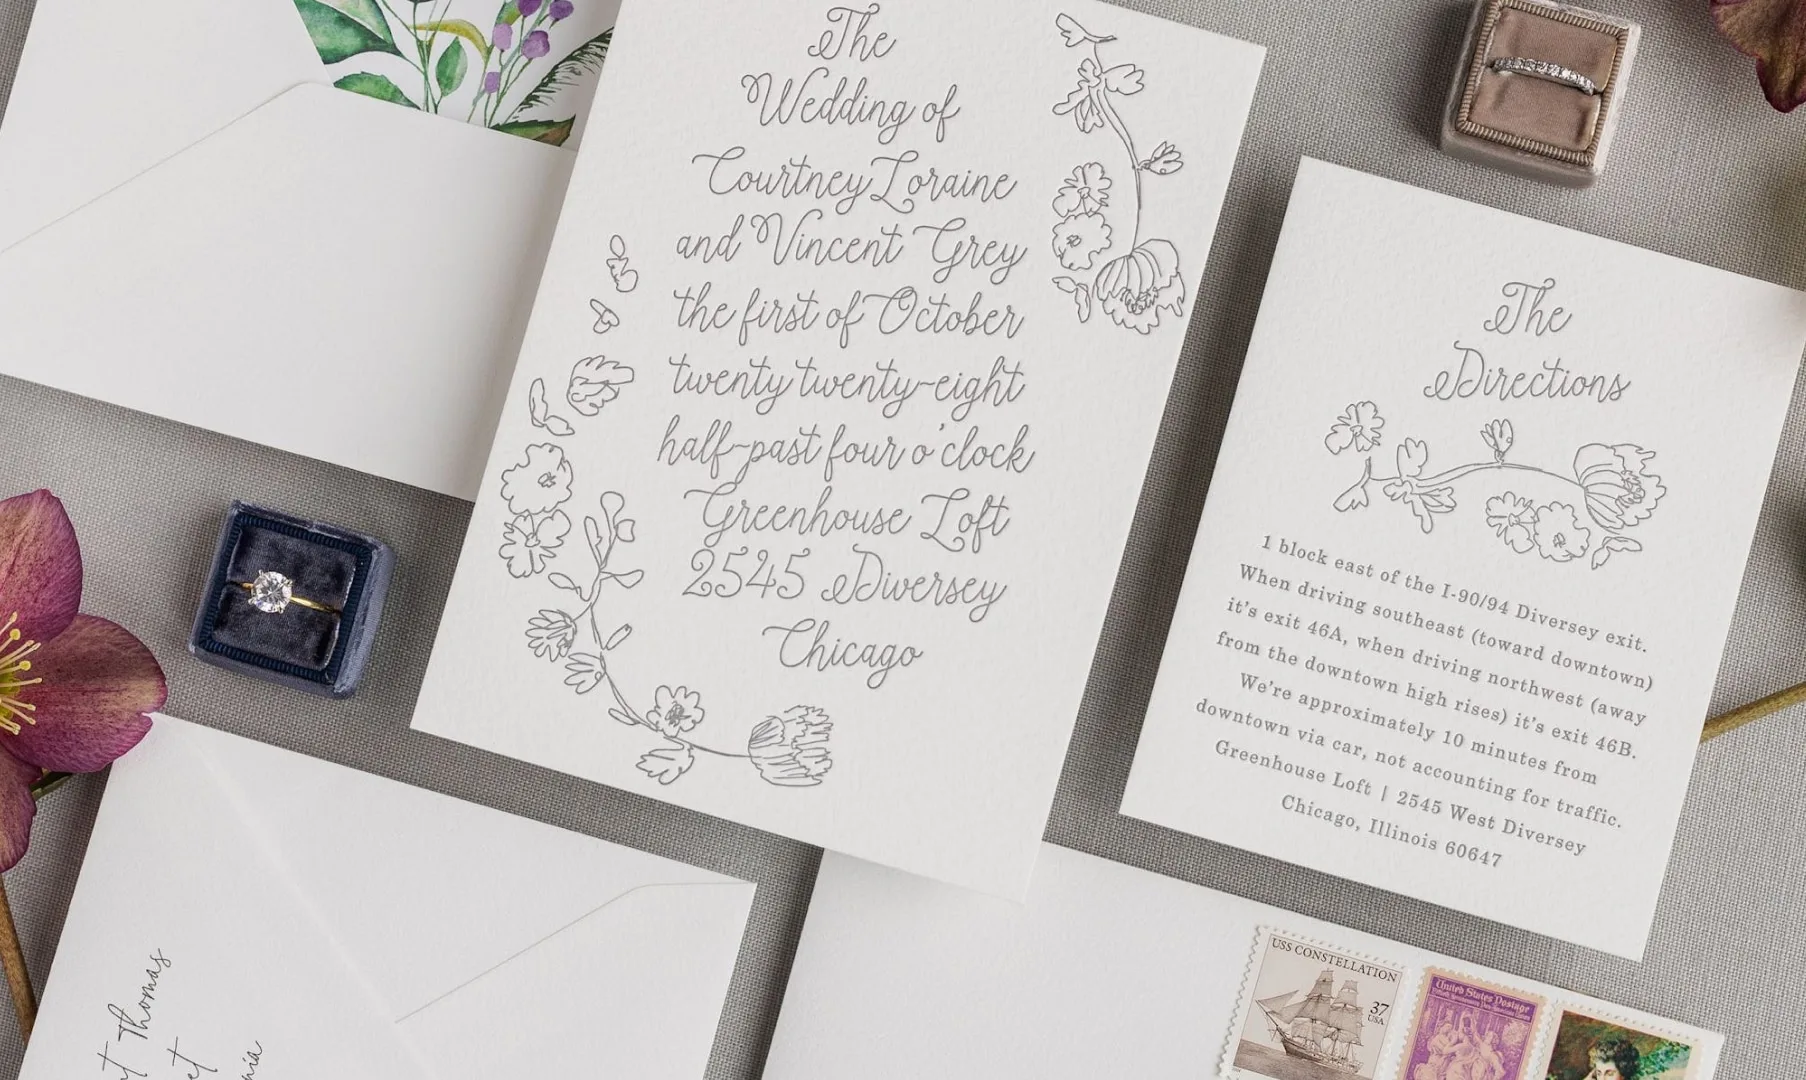 The
Wedding of
Courtney Loraine
and Vincent Grey
the first of October
twenty twenty-eight
half-past four o'clock
Greenhouse Loft
2545 Diversey
Chicago
The
Directions
1 block east of the I-90/94 Diversey exit.
When driving southeast (toward downtown)
it's exit 46A, when driving northwest (away
from the downtown high rises) it's exit 46B.
We're approximately 10 minutes from
downtown via car, not accounting for traffic.
Greenhouse Loft | 2545 West Diversey
Chicago, Illinois 60647
Thomas
USS CONSTELLATION
37
USA
United States Postage